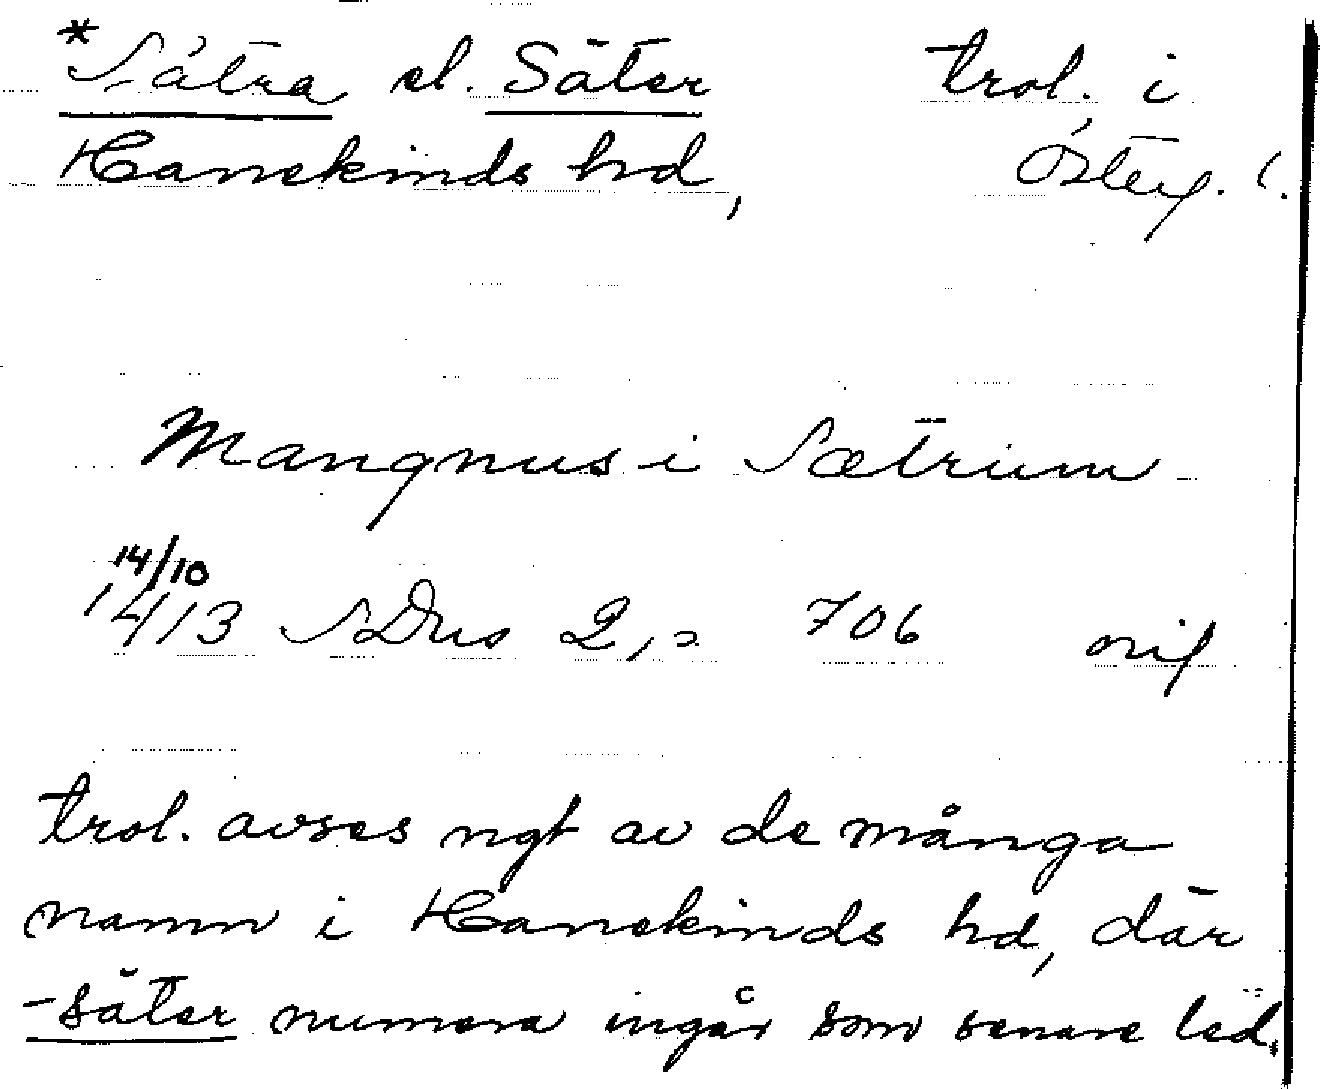 *Sätra el. Säter trol. i
Hanekinds hd, Österg. l.
Mangnus i Sætrum
14/10
1413 SDns 2, s 706 orig
trol. avses ngt av de många
namn i Hanekinds hd, där
-säter numera ingår som senare led.